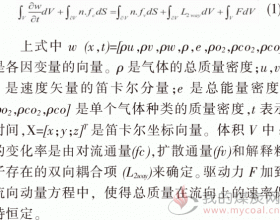 ∫_V ∂w/∂t dV + ∫_∂V n.f_c dS = ∫_∂V n.f_v dS + ∫_V L_2way dV + ∫_V FdV (1)
上式中 w (x,t)=[ρu,ρv,ρw,ρ,e,ρo₂,ρco₂,ρco]
是各因变量的向量。ρ是气体的总质量密度;u,v
是速度矢量的笛卡尔分量;e 是总能量密度
ρo₂,ρco₂,ρco] 是单个气体种类的质量密度,t 表示
时间,X=[x;y;z]ᵀ是笛卡尔坐标向量。体积 V 中
的变化率是由对流通量(fc),扩散通量(fv)和解释粒
子存在的双向耦合项 (L2way)来确定。驱动力 F 加到
流向动量方程中，使得总质量在流向上的
持恒定。
我的煤炭网
www.mycoal.cn